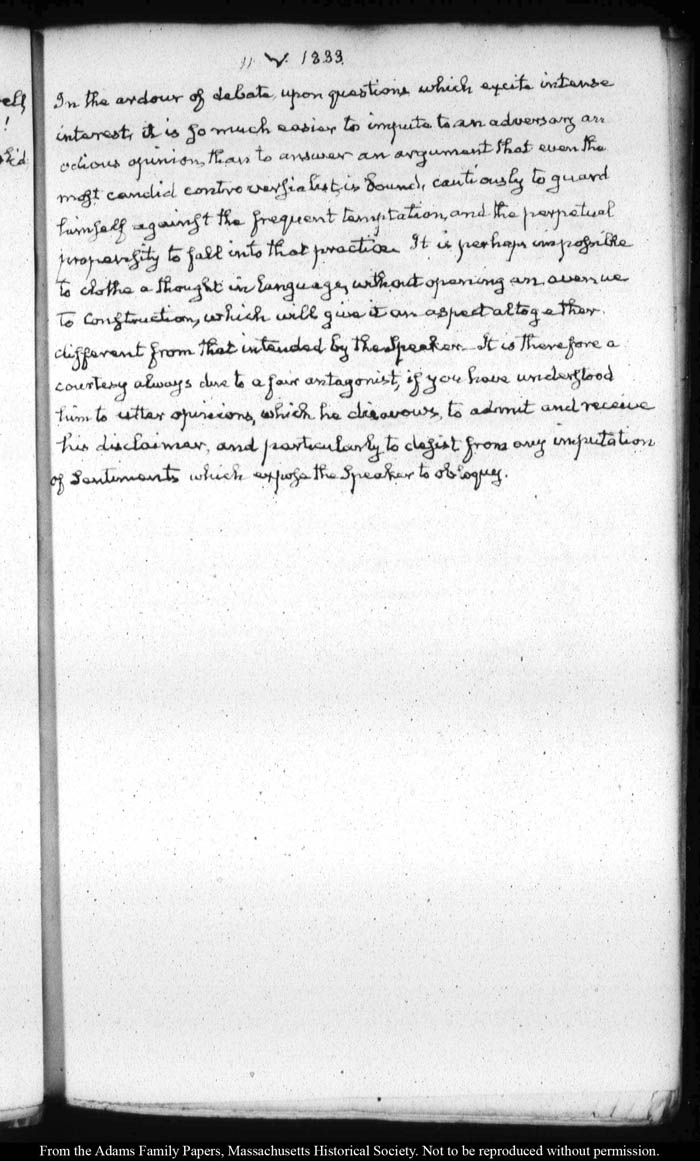 ell,
!
11 V. 1833.
In the ardour of debate, upon questions which excite intense
interest, it is so much easier to impute to an adversary an
odious opinion, than to answer an argument that even the
most candid controversialist, is bound, cautiously to guard
himself against the frequent temptation, and the perpetual
propensity to fall into that practice. It is perhaps impossible
to clothe a thought in language, without opening an avenue
to construction, which will give it an aspect altogether
different from that intended by the Speaker. It is therefore a
courtesy always due to a fair antagonist, if you have understood
him to utter opinions, which he disavows, to admit and receive
his disclaimer, and particularly to desist from any imputation
of Sentiments which expose the Speaker to obloquy.
From the Adams Family Papers, Massachusetts Historical Society. Not to be reproduced without permission.